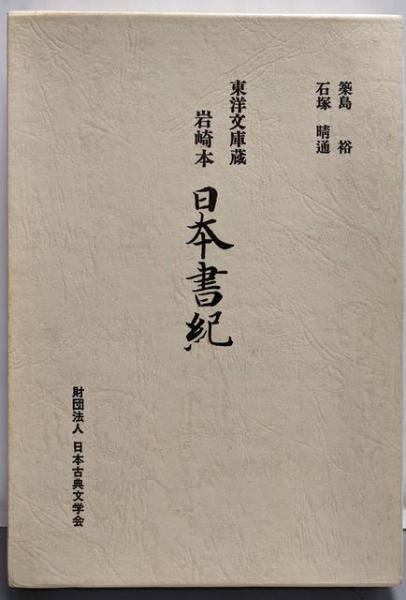 築島 裕
石塚 晴通
東洋文庫蔵
岩崎本 日本書紀
財団法人 日本古典文学会